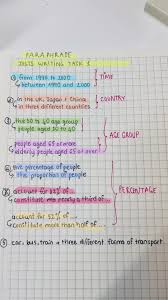 PARAPHRASE
IELTS WRITING TASK 1
① from 1990 to 2000
between 1990 and 2000
TIME
② in the UK, Japan & China
in three different countries
COUNTRY
③ the 60 to 40 age group
people aged to 40
people aged 65 or more
elderly people aged 65 or over
AGE GROUP
④ the percentage of people
the proportion of people
account for of
constitute nearly a third of
PERCENTAGE
account for 52% of
constitute more than half of
⑤ car, bus, train → three different forms of transport